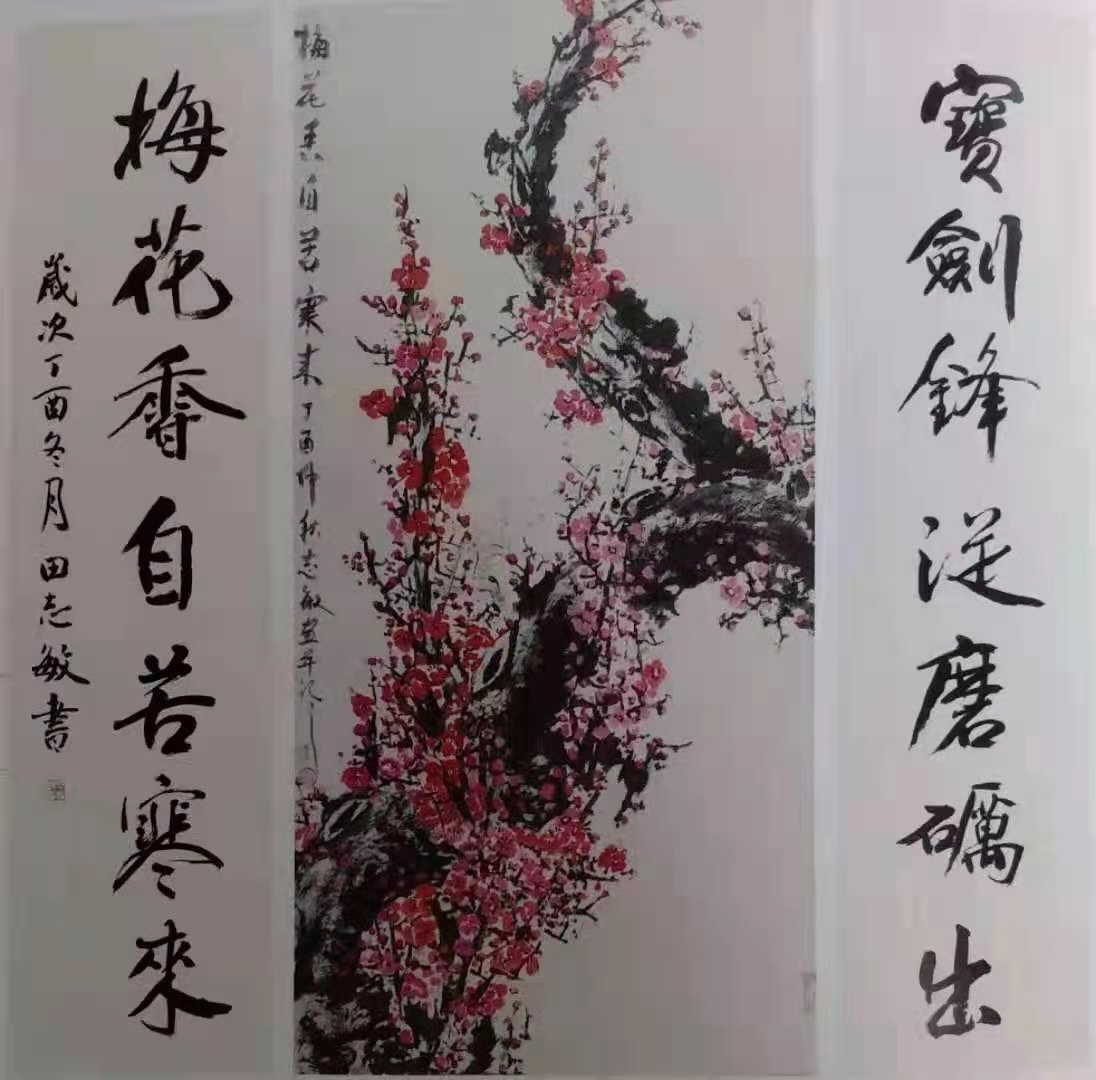 寶劍鋒從磨礪出
梅花香自苦寒來
歲次丁酉冬月田志敏書
梅花香自苦寒来丁酉仲秋志敏画并记